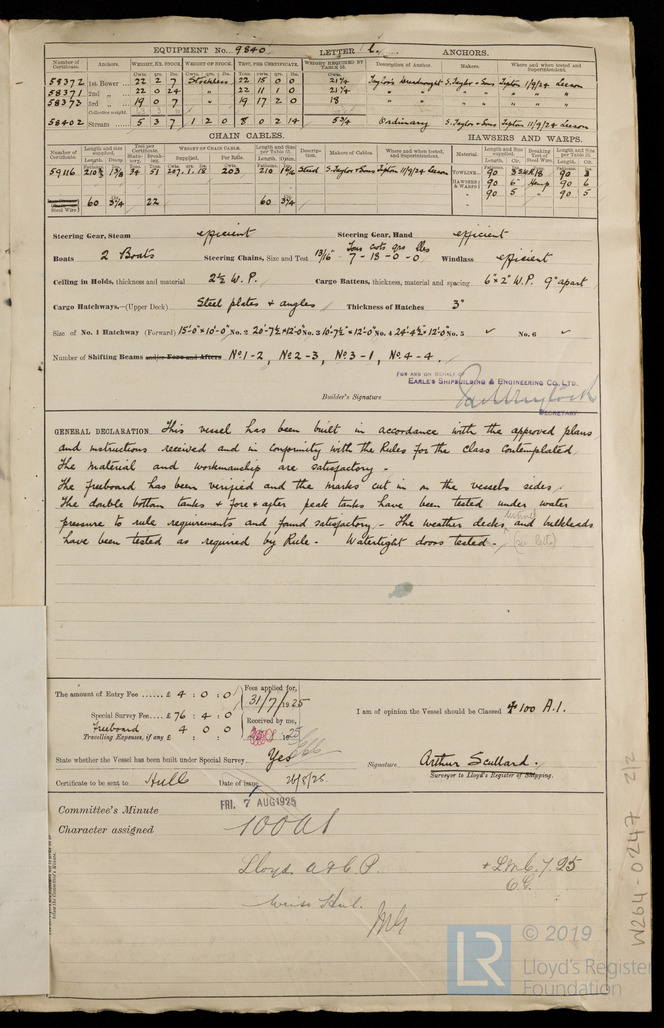 EQUIPMENT No. 9840 LETTER l. ANCHORS.
Number of Certificate. Anchors. WEIGHT, EX. STOCK. WEIGHT OF STOCK. TEST, PER CERTIFICATE. WEIGHT REQUIRED BY TABLE 53. Description of Anchor. Makers. Where and when tested and Superintendent.
Cwts. qrs. lbs. Cwts. qrs. lbs. Tons. cwts. qrs. lbs. Cwts.
58372 1st Bower 22 2 7 Stockless 22 15 0 0 21¼ Taylor's Dreadnought S. Taylor & Sons Tipton 1/9/24 Leeson
58371 2nd " 22 0 24 " 22 11 1 0 21¼ " " " " " "
58373 3rd " 19 0 7 " 19 17 2 0 18 " " " " " "
Collective weight.
58402 Stream 5 3 7 1 2 0 8 0 2 14 5¾ Ordinary S. Taylor & Sons Tipton 11/9/24 Leeson
CHAIN CABLES. HAWSERS AND WARPS.
Number of Certificate. Length and size supplied. Test per Certificate. WEIGHT OF CHAIN CABLE. Length and Size per Table 53. Description. Makers of Cables. Where and when tested, and Superintendent. Material. Length and Size supplied. Breaking Test of Steel Wire. Length and Size per Table 53.
59116 34 51 207. 1. 18 203 210 Stud S. Taylor & Sons Tipton 11/9/24 Leeson TOWLINE 90 18 90 3
HAWSERS & WARPS 90 6" Hemp 90 6
90 5" " 90 5
Steel Wire 60 3¼ 22 60 3¼
Steering Gear, Steam efficient Steering Gear, Hand efficient
Boats 2 Boats Steering Chains, Size and Test 13/16" Tons cwts qrs lbs 7 - 18 - 0 - 0 Windlass efficient
Ceiling in Holds, thickness and material 2½ W.P. Cargo Battens, thickness, material and spacing 6" x 2" W.P. 9" apart
Cargo Hatchways.—(Upper Deck) Steel plates & angles Thickness of Hatches 3"
Size of No. 1 Hatchway (Forward) 15'-0" x 10'-0" No. 2 20'-7½" x 12'-0" No. 3 10'-7½" x 12'-0" No. 4 24'-4½" x 12'-0" No. 5 ✓ No. 6 ✓
Number of Shifting Beams and/or Fore and Afters No. 1-2, No. 2-3, No. 3-1, No. 4-4.
FOR AND ON BEHALF OF
EARLE'S SHIPBUILDING & ENGINEERING CO. LTD.
Builder's Signature
SECRETARY
GENERAL DECLARATION This vessel has been built in accordance with the approved plans
and instructions received and in conformity with the Rules for the class contemplated
The material and workmanship are satisfactory.
The freeboard has been verified and the marks cut in on the vessels sides.
The double bottom tanks & fore & after peak tanks have been tested under water
pressure to rule requirements and found satisfactory. - The weather decks, and bulkheads
have been tested as required by Rule - Watertight doors tested.
The amount of Entry Fee £ 4 : 0 : 0
Special Survey Fee £ 76 : 4 : 0
Freeboard 4 0 0
Travelling Expenses, if any £ : :
Fees applied for,
31/7/1925
Received by me,
1925
I am of opinion the Vessel should be Classed ✠ 100 A.1.
State whether the Vessel has been built under Special Survey Yes
Signature Arthur Scullard.
Surveyor to Lloyd's Register of Shipping.
Certificate to be sent to Hull Date of issue 26/8/25
Committee's Minute FRI. 7 AUG 1925
Character assigned 100A1
Lloyds A & C. P. + L.M.C. 7. 25
C.L.
W264-0247 2/2
LR
© 2019
Lloyd's Register
Foundation